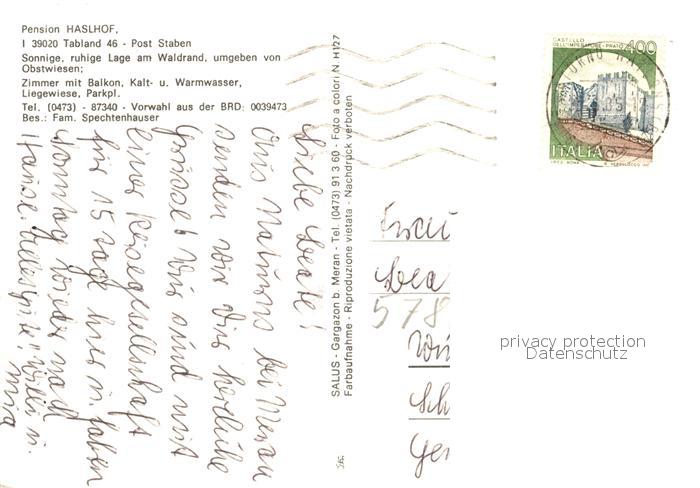 Pension HASLHOF,
I 39020 Tabland 46 - Post Staben
Sonnige, ruhige Lage am Waldrand, umgeben von
Obstwiesen;
Zimmer mit Balkon, Kalt- u. Warmwasser,
Liegewiese, Parkpl.
Tel. (0473) - 87340 - Vorwahl aus der BRD: 0039473
Bes.: Fam. Spechtenhauser
Liebe Beate!
Aus Naturns bei Meran
senden wir Dir herzliche
Grüsse! Wir sind mit
einer Reisegesellschaft
für 15 Tage hier u. fahren
Sonntag wieder nach
Hause.
SALUS - Gargazon b. Meran - Tel. (0473) 91 3 60 - Foto a colori N. H127
Farbaufnahme - Riproduzione vietata - Nachdruck verboten
CASTELLO
DELL'IMPERATORE - PRATO
400
ITALIA
Frau
Bea
578
Wü
Sch
Ger
privacy protection
Datenschutz